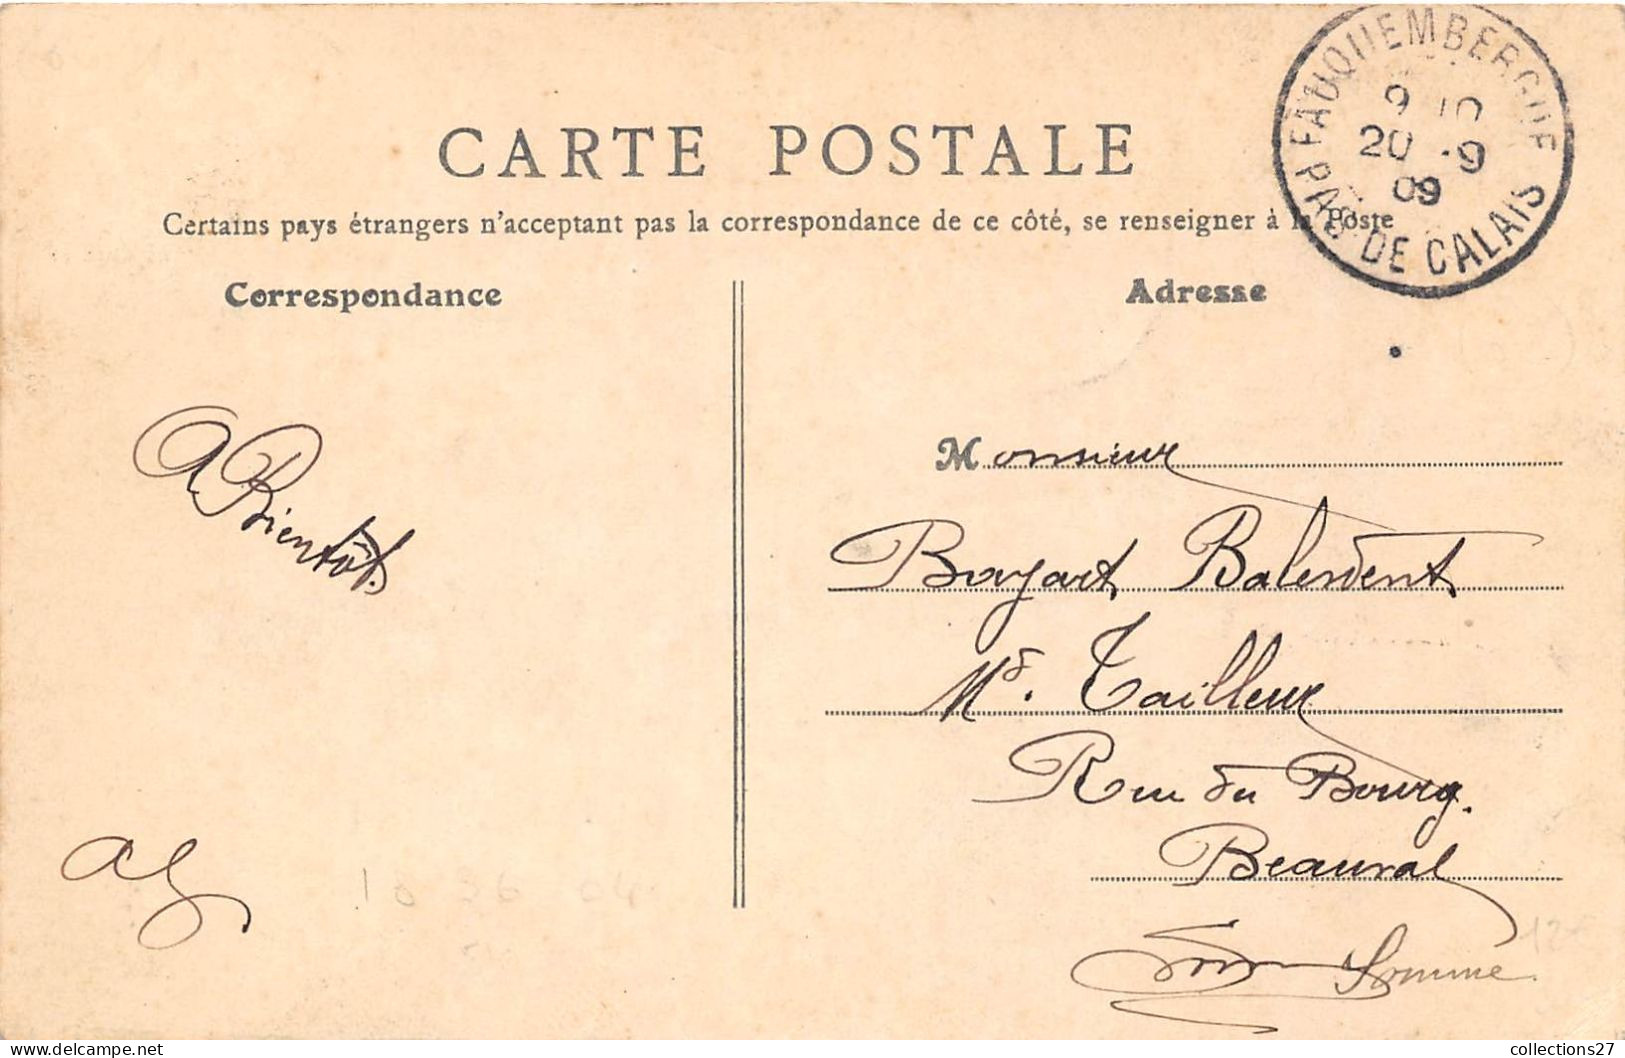 CARTE POSTALE
Certains pays étrangers n'acceptant pas la correspondance de ce côté, se renseigner à la Poste
FAUQUEMBERGUE
9 10
20 -9
09
PAS DE CALAIS
Correspondance
Adresse
A Bientôt.
Monsieur
Bayart Balerdent
Md. Tailleur
Rue du Bourg.
Beauval
Somme
10 26 04
12€
collections27